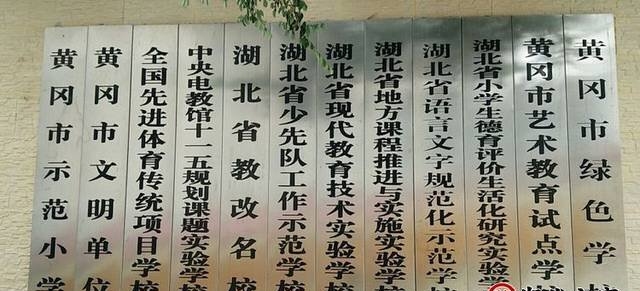 黄冈市示范小学
黄冈市文明单位
全国先进体育传统项目学校
中央电教馆十一五规划课题实验学校
湖北省教改名校
湖北省少先队工作示范学校
湖北省现代教育技术实验学校
湖北省地方课程推进与实施实验学校
湖北省语言文字规范化示范学校
湖北省小学生德育评价生活化研究实验学
黄冈市艺术教育试点学
黄冈市绿色学